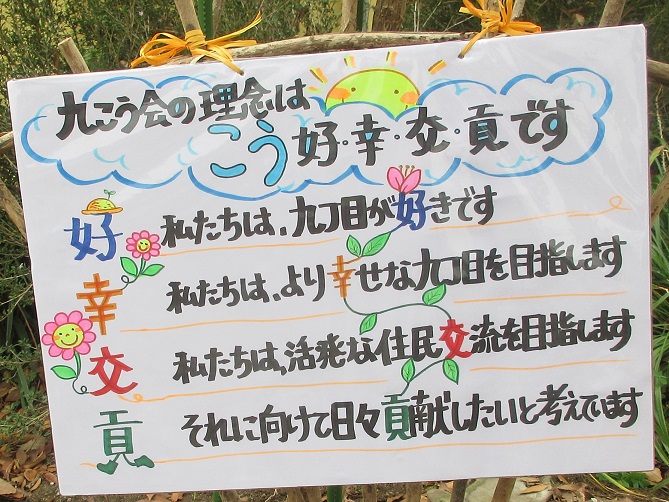 九こう会の理念は
こう 好・幸・交・貢です
好 私たちは、九丁目が好きです
幸 私たちは、より幸せな九丁目を目指します
交 私たちは、活発な住民交流を目指します
貢 それに向けて日々貢献したいと考えています